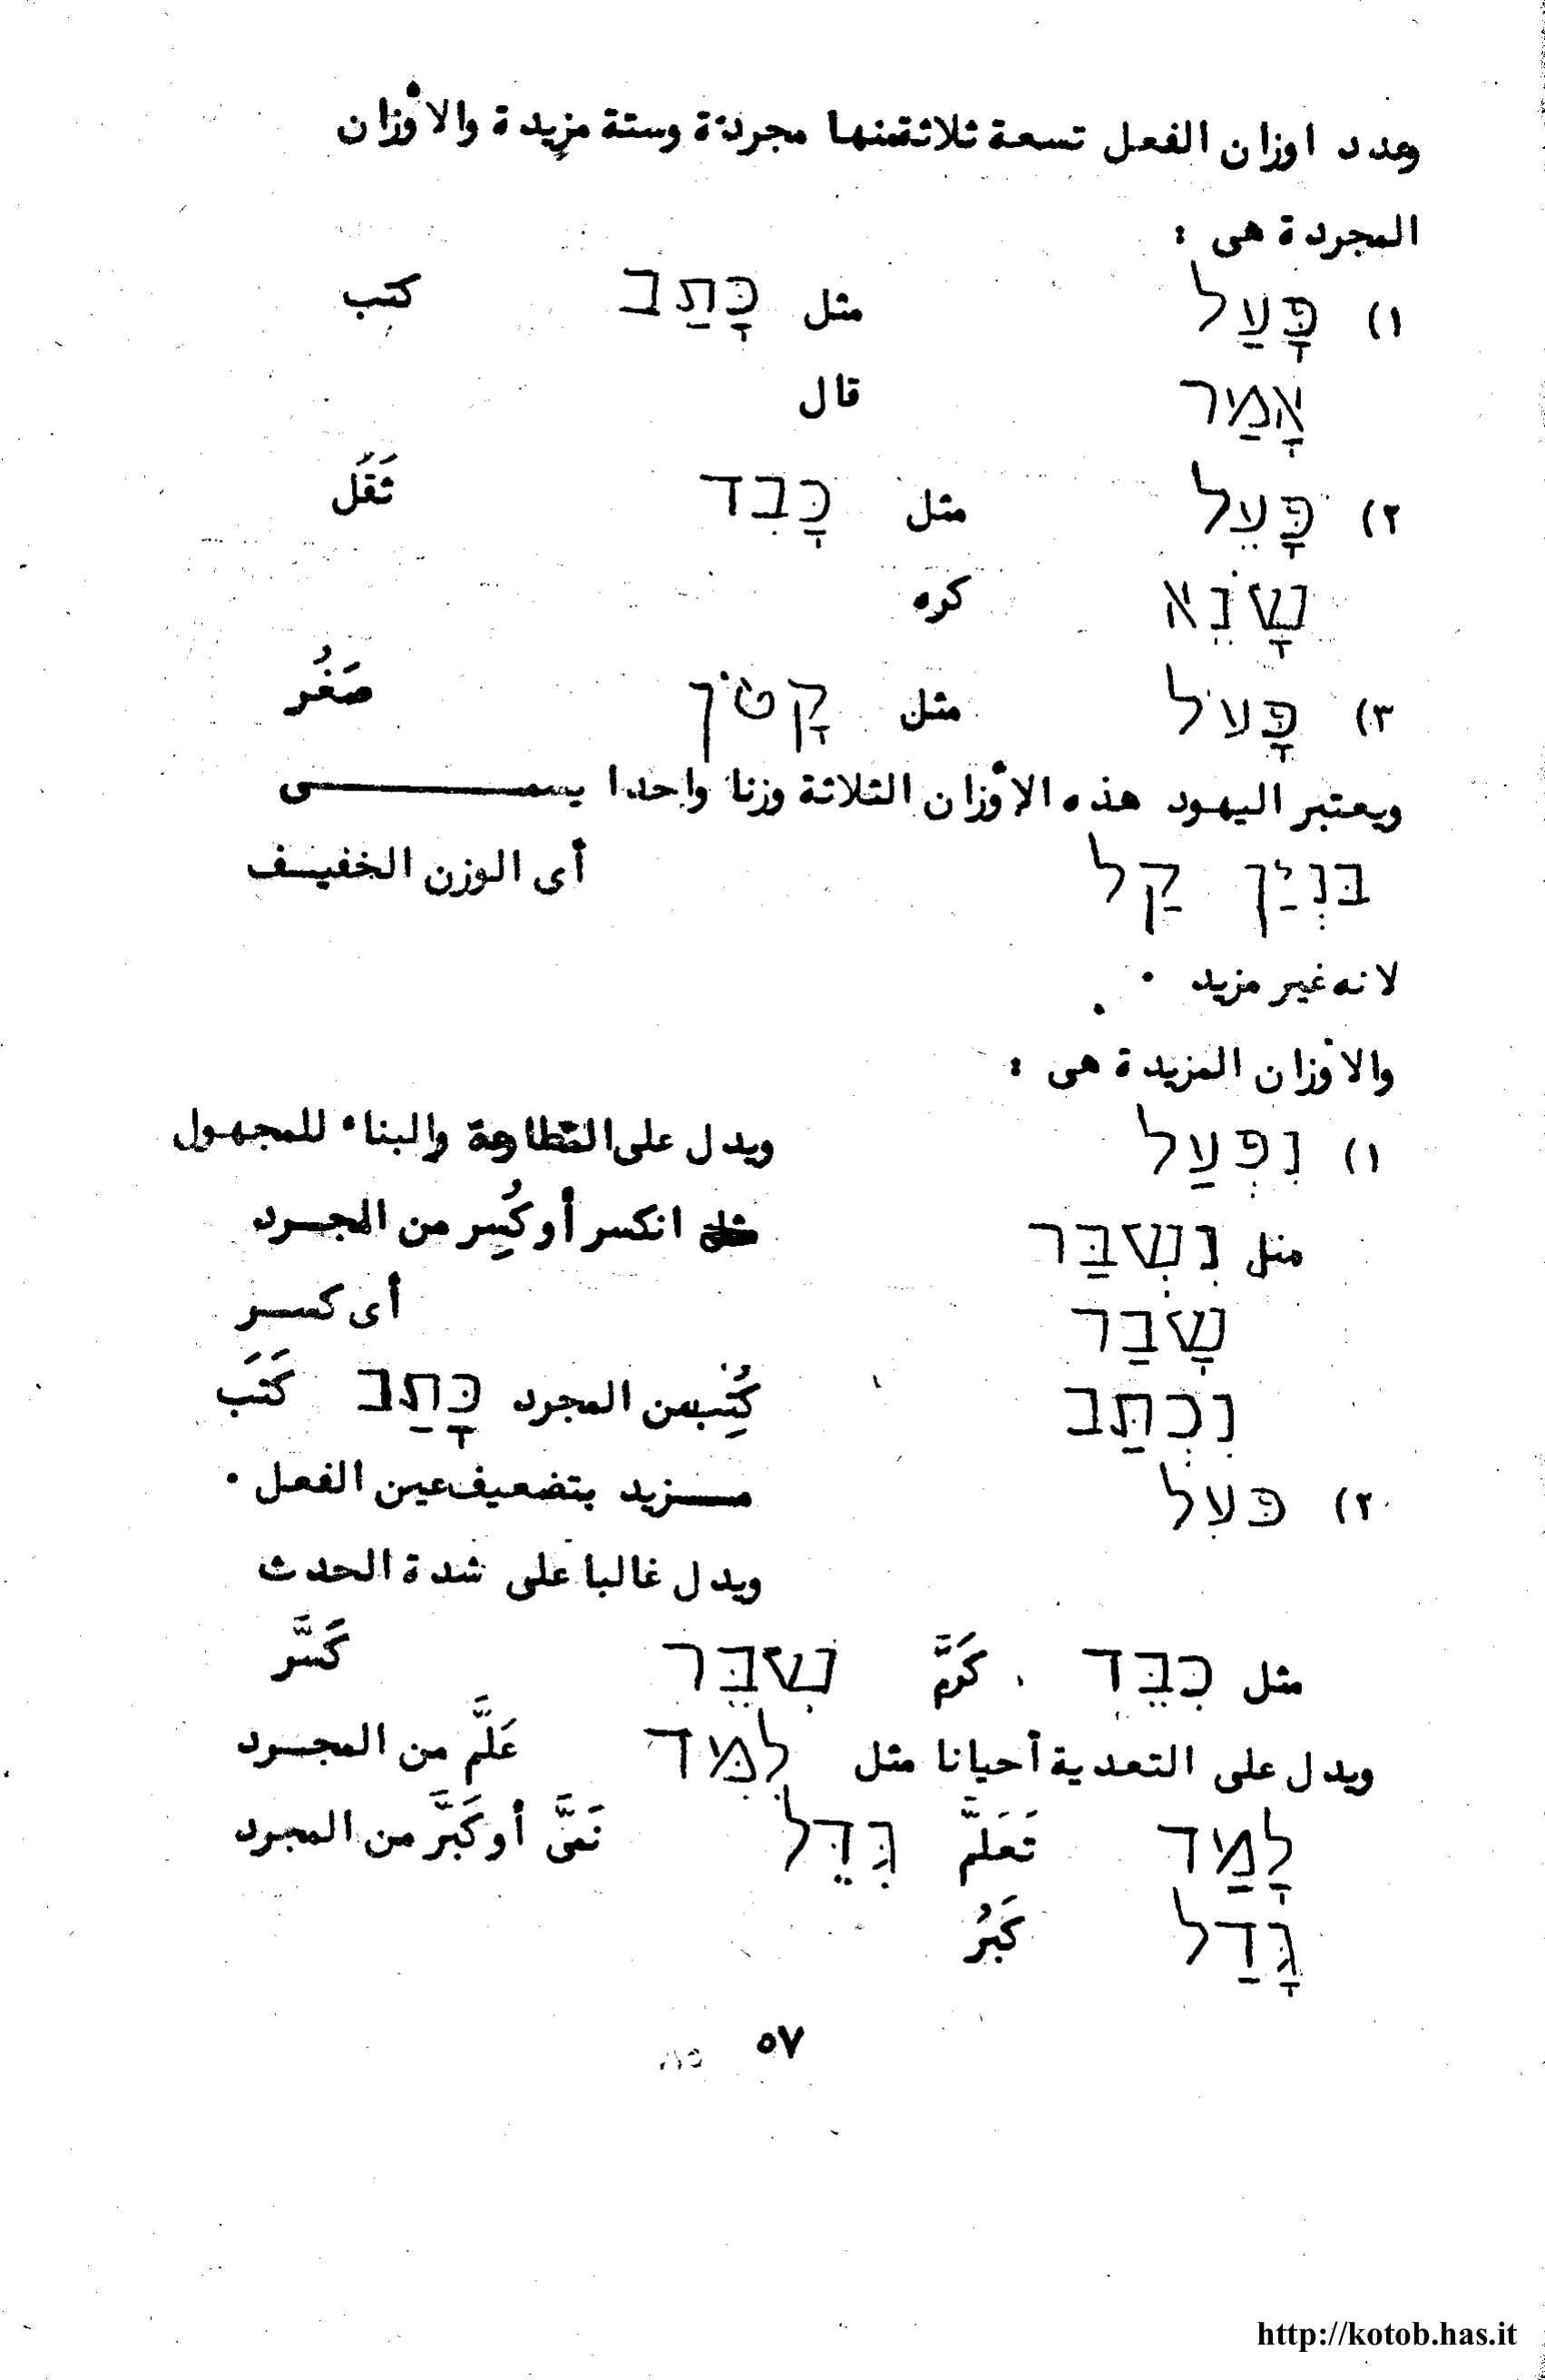 وعدد اوزان الفعل تسعة ثلاثة منها مجردة وستة مزيدة والأوزان
المجردة هى :
١) פָּעַל مثل כָּתַב كتب
אָמַר قال
٢) פָּעֵל مثل כָּבִד ثَقَل
שָׂנֵא كره
٣) פָּעֹל مثل קָטֹן صَغُر
ويعتبر اليهود هذه الأوزان الثلاثة وزنا واحدا يسمـــــى
בִּנְיַן קַל أى الوزن الخفيــف
لانه غير مزيد ٠
والأوزان المزيدة هى :
١) נִפְעַל ويدل على المطاوعة والبناء للمجهول
مثل נִשְׁבַּר مثل انكسر أو كُسِر من المجــرد
שָׁבַר أى كســر
נִכְתַּב كُتِب من المجرد כָּתַב كَتَب
٢) פִּעֵל مــزيد بتضعيف عين الفعل ٠
ويدل غالبا على شدة الحدث
مثل כִּבֵּד كَرَّم שִׁבֵּר كَسَّر
ويدل على التعدية أحيانا مثل לִמֵּד عَلَّم من المجــرد
לָמַד تَعَلَّم גִּדֵּל نَمَّى أو كَبَّر من المجرد
גָּדַל كَبُر
٥٧
http://kotob.has.it